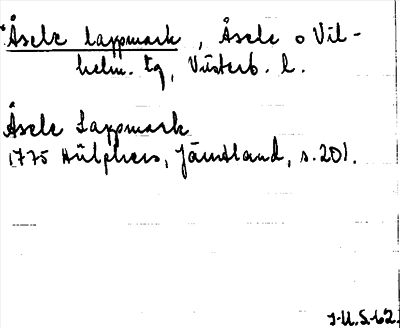 Åsele lappmark, Åsele o Vil-
helm. tg, Västerb. l.
Åsele Lappmark
1775 Hülphers, Jämtland, s. 201.
J.U.S.62.